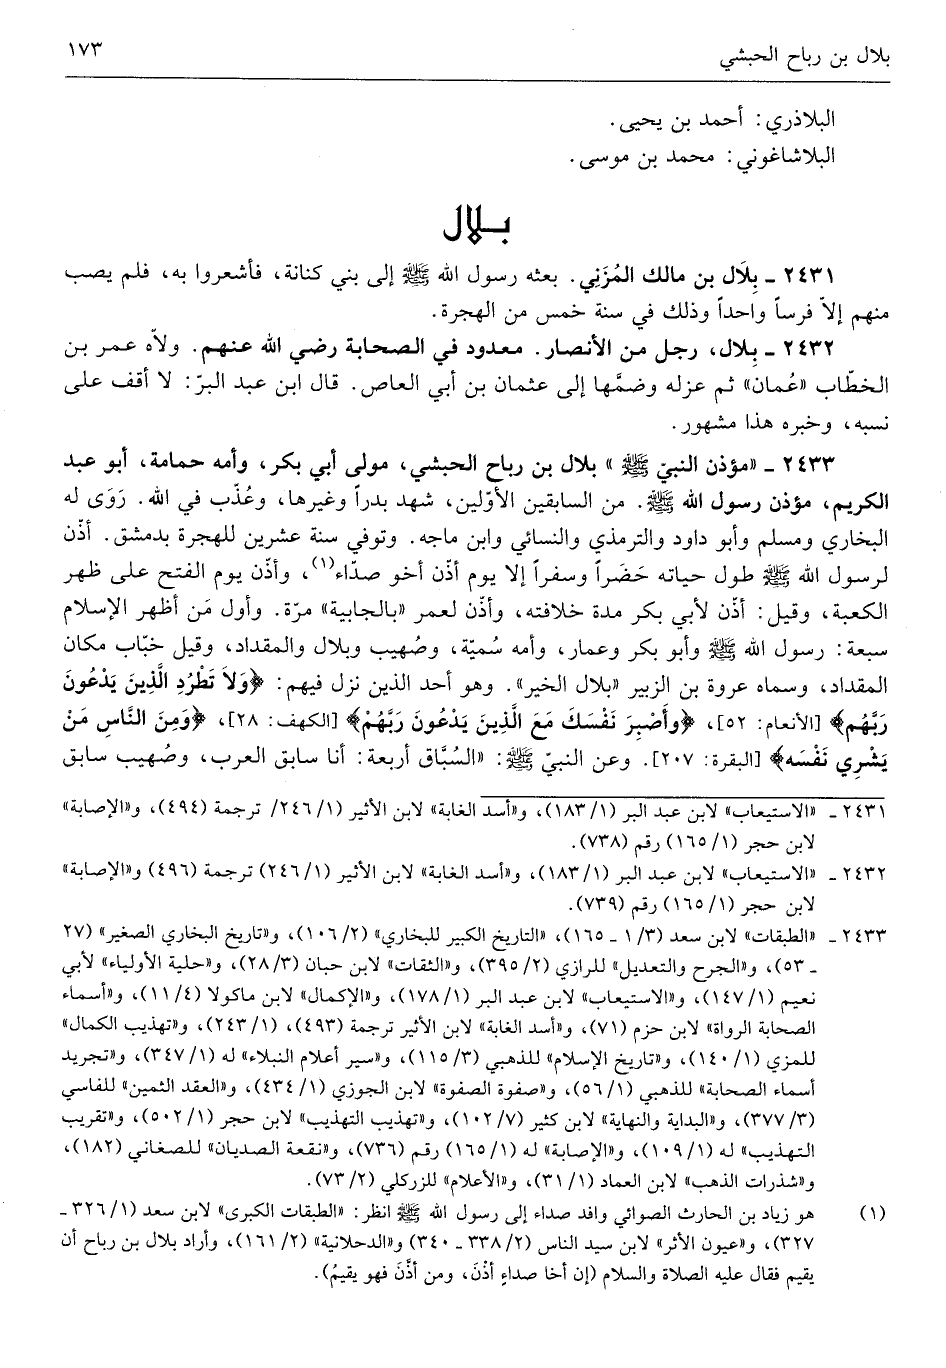 بلال بن رباح الحبشي ١٧٣
البلاذري: أحمد بن يحيى.
البلاشاغوني: محمد بن موسى.
بلال
٢٤٣١ ـ بِلَال بن مالك المُزَنِي. بعثه رسول الله ﷺ إلى بني كنانة، فأشعروا به، فلم يصب
منهم إلاّ فرساً واحداً وذلك في سنة خمس من الهجرة.
٢٤٣٢ ـ بِلال، رجل من الأنصار. معدود في الصحابة رضي الله عنهم. ولاّه عمر بن
الخطّاب «عُمان» ثم عزله وضمَّها إلى عثمان بن أبي العاص. قال ابن عبد البرّ: لا أقف على
نسبه، وخبره هذا مشهور.
٢٤٣٣ ـ «مؤذن النبيّ ﷺ» بلال بن رباح الحبشي، مولى أبي بكر، وأمه حمامة، أبو عبد
الكريم، مؤذن رسول الله ﷺ. من السابقين الأوّلين، شهد بدراً وغيرها، وعُذّب في الله. رَوَى له
البخاري ومسلم وأبو داود والترمذي والنسائي وابن ماجه. وتوفي سنة عشرين للهجرة بدمشق. أذّن
لرسول الله ﷺ طول حياته حَضَراً وسفراً إلا يوم أذّن أخو صدّاء(١)، وأذّن يوم الفتح على ظهر
الكعبة، وقيل: أذّن لأبي بكر مدة خلافته، وأذّن لعمر «بالجابية» مرّة. وأول مَن أظهر الإسلام
سبعة: رسول الله ﷺ وأبو بكر وعمار، وأمه سُميّة، وصُهيب وبلال والمقداد، وقيل خبّاب مكان
المقداد، وسماه عروة بن الزبير «بلال الخير». وهو أحد الذين نزل فيهم: ﴿وَلاَ تَطْرُدِ الَّذِينَ يَدْعُونَ
رَبَّهُم﴾ [الأنعام: ٥٢]، ﴿وأَصْبِرَ نَفْسَكَ مَعَ الَّذِينَ يَدْعُونَ رَبَّهُمْ﴾ [الكهف: ٢٨]، ﴿وَمِنَ النَّاسِ مَنْ
يَشْرِي نَفْسَه﴾ [البقرة: ٢٠٧]. وعن النبيّ ﷺ: «السُبَّاق أربعة: أنا سابق العرب، وصُهيب سابق
٢٤٣١ ـ «الاستيعاب» لابن عبد البر (١/ ١٨٣)، و«أسد الغابة» لابن الأثير (١/ ٢٤٦/ ترجمة (٤٩٤)، و«الإصابة»
لابن حجر (١/ ١٦٥) رقم (٧٣٨).
٢٤٣٢ ـ «الاستيعاب» لابن عبد البر (١/ ١٨٣)، و«أسد الغابة» لابن الأثير (١/ ٢٤٦) ترجمة (٤٩٦) و«الإصابة»
لابن حجر (١/ ١٦٥) رقم (٧٣٩).
٢٤٣٣ ـ «الطبقات» لابن سعد (٣/ ١ ـ ١٦٥)، «التاريخ الكبير للبخاري» (٢/ ١٠٦)، و«تاريخ البخاري الصغير» (٢٧
ـ ٥٣)، و«الجرح والتعديل» للرازي (٢/ ٣٩٥)، و«الثقات» لابن حبان (٣/ ٢٨)، و«حلية الأولياء» لأبي
نعيم (١/ ١٤٧)، و«الاستيعاب» لابن عبد البر (١/ ١٧٨)، و«الإكمال» لابن ماكولا (٤/ ١١)، و«أسماء
الصحابة الرواة» لابن حزم (٧١)، و«أسد الغابة» لابن الأثير ترجمة (٤٩٣)، (١/ ٢٤٣)، و«تهذيب الكمال»
للمزي (١/ ١٤٠)، و«تاريخ الإسلام» للذهبي (٣/ ١١٥)، و«سير أعلام النبلاء» له (١/ ٣٤٧)، و«تجريد
أسماء الصحابة» للذهبي (١/ ٥٦)، و«صفوة الصفوة» لابن الجوزي (١/ ٤٣٤)، و«العقد الثمين» للفاسي
(٣/ ٣٧٧)، و«البداية والنهاية» لابن كثير (٧/ ١٠٢)، و«تهذيب التهذيب» لابن حجر (١/ ٥٠٢)، و«تقريب
التهذيب» له (١/ ١٠٩)، و«الإصابة» له (١/ ١٦٥) رقم (٧٣٦)، و«نقعة الصديان» للصغاني (١٨٢)،
و«شذرات الذهب» لابن العماد (١/ ٣١)، و«الأعلام» للزركلي (٢/ ٧٣).
(١) هو زياد بن الحارث الصوائي وافد صداء إلى رسول الله ﷺ انظر: «الطبقات الكبرى» لابن سعد (١/ ٣٢٦ ـ
٣٢٧)، و«عيون الأثر» لابن سيد الناس (٢/ ٣٣٨ ـ ٣٤٠) و«الدحلانية» (٢/ ١٦١)، وأراد بلال بن رباح أن
يقيم فقال عليه الصلاة والسلام (إن أخا صداءٍ أذّنَ، ومن أذَّنَ فهو يقيمُ).